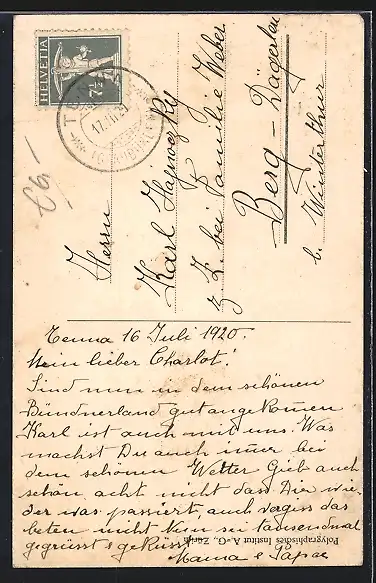 HELVETIA
7½
17.VII.2
(GRAUBÜNDEN)
Herrn
Karl
z. Z. bei Familie Weber
Berg - Dägerlen
b. Winterthur
Tenna 16 Juli 1920.
Mein lieber Charlot!
Sind nun in dem schönen
Bündnerland gut angekommen
Karl ist auch mit uns. Was
machst Du auch immer bei
dem schönen Wetter Gieb auch
schön acht nicht dass Dir wie-
der was passiert auch vergiss das
beten nicht Nun sei tausendmal
gegrüsst & geküsst
Mama & Papa
Polygraphisches Institut A.-G., Zürich